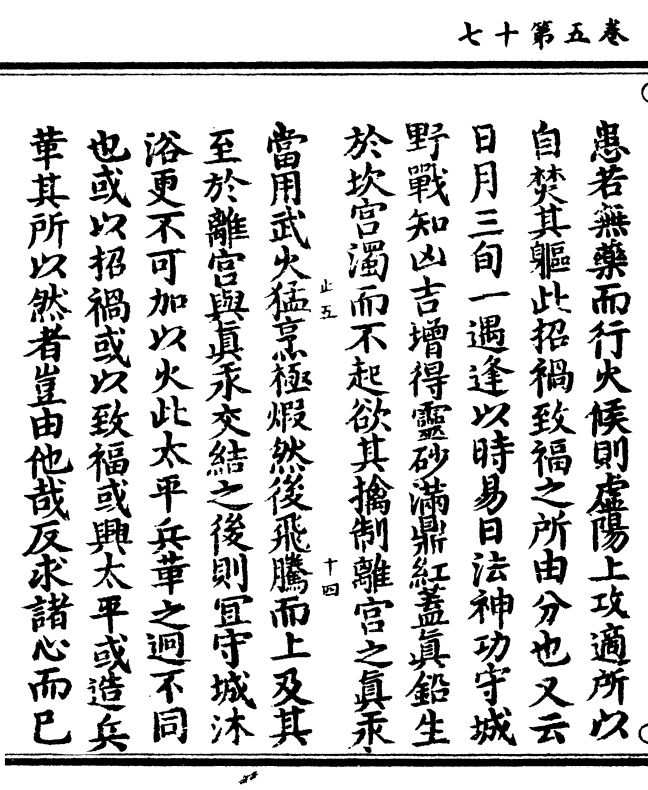 卷五第十七
患若無藥而行火候則虛陽上攻適所以
自焚其軀此招禍致福之所由分也又云
日月三旬一遇逢以時易日法神功守城
野戰知凶吉增得靈砂滿鼎紅蓋真鉛生
於坎宮濁而不起欲其擒制離宮之真汞
止五
十四
當用武火猛烹極煆然後飛騰而上及其
至於離宮與真汞交結之後則宜守城沐
浴更不可加以火此太平兵革之迥不同
也或以招禍或以致福或興太平或造兵
革其所以然者豈由他哉反求諸心而已